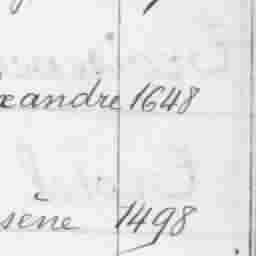 exandre 1648
sène 1498